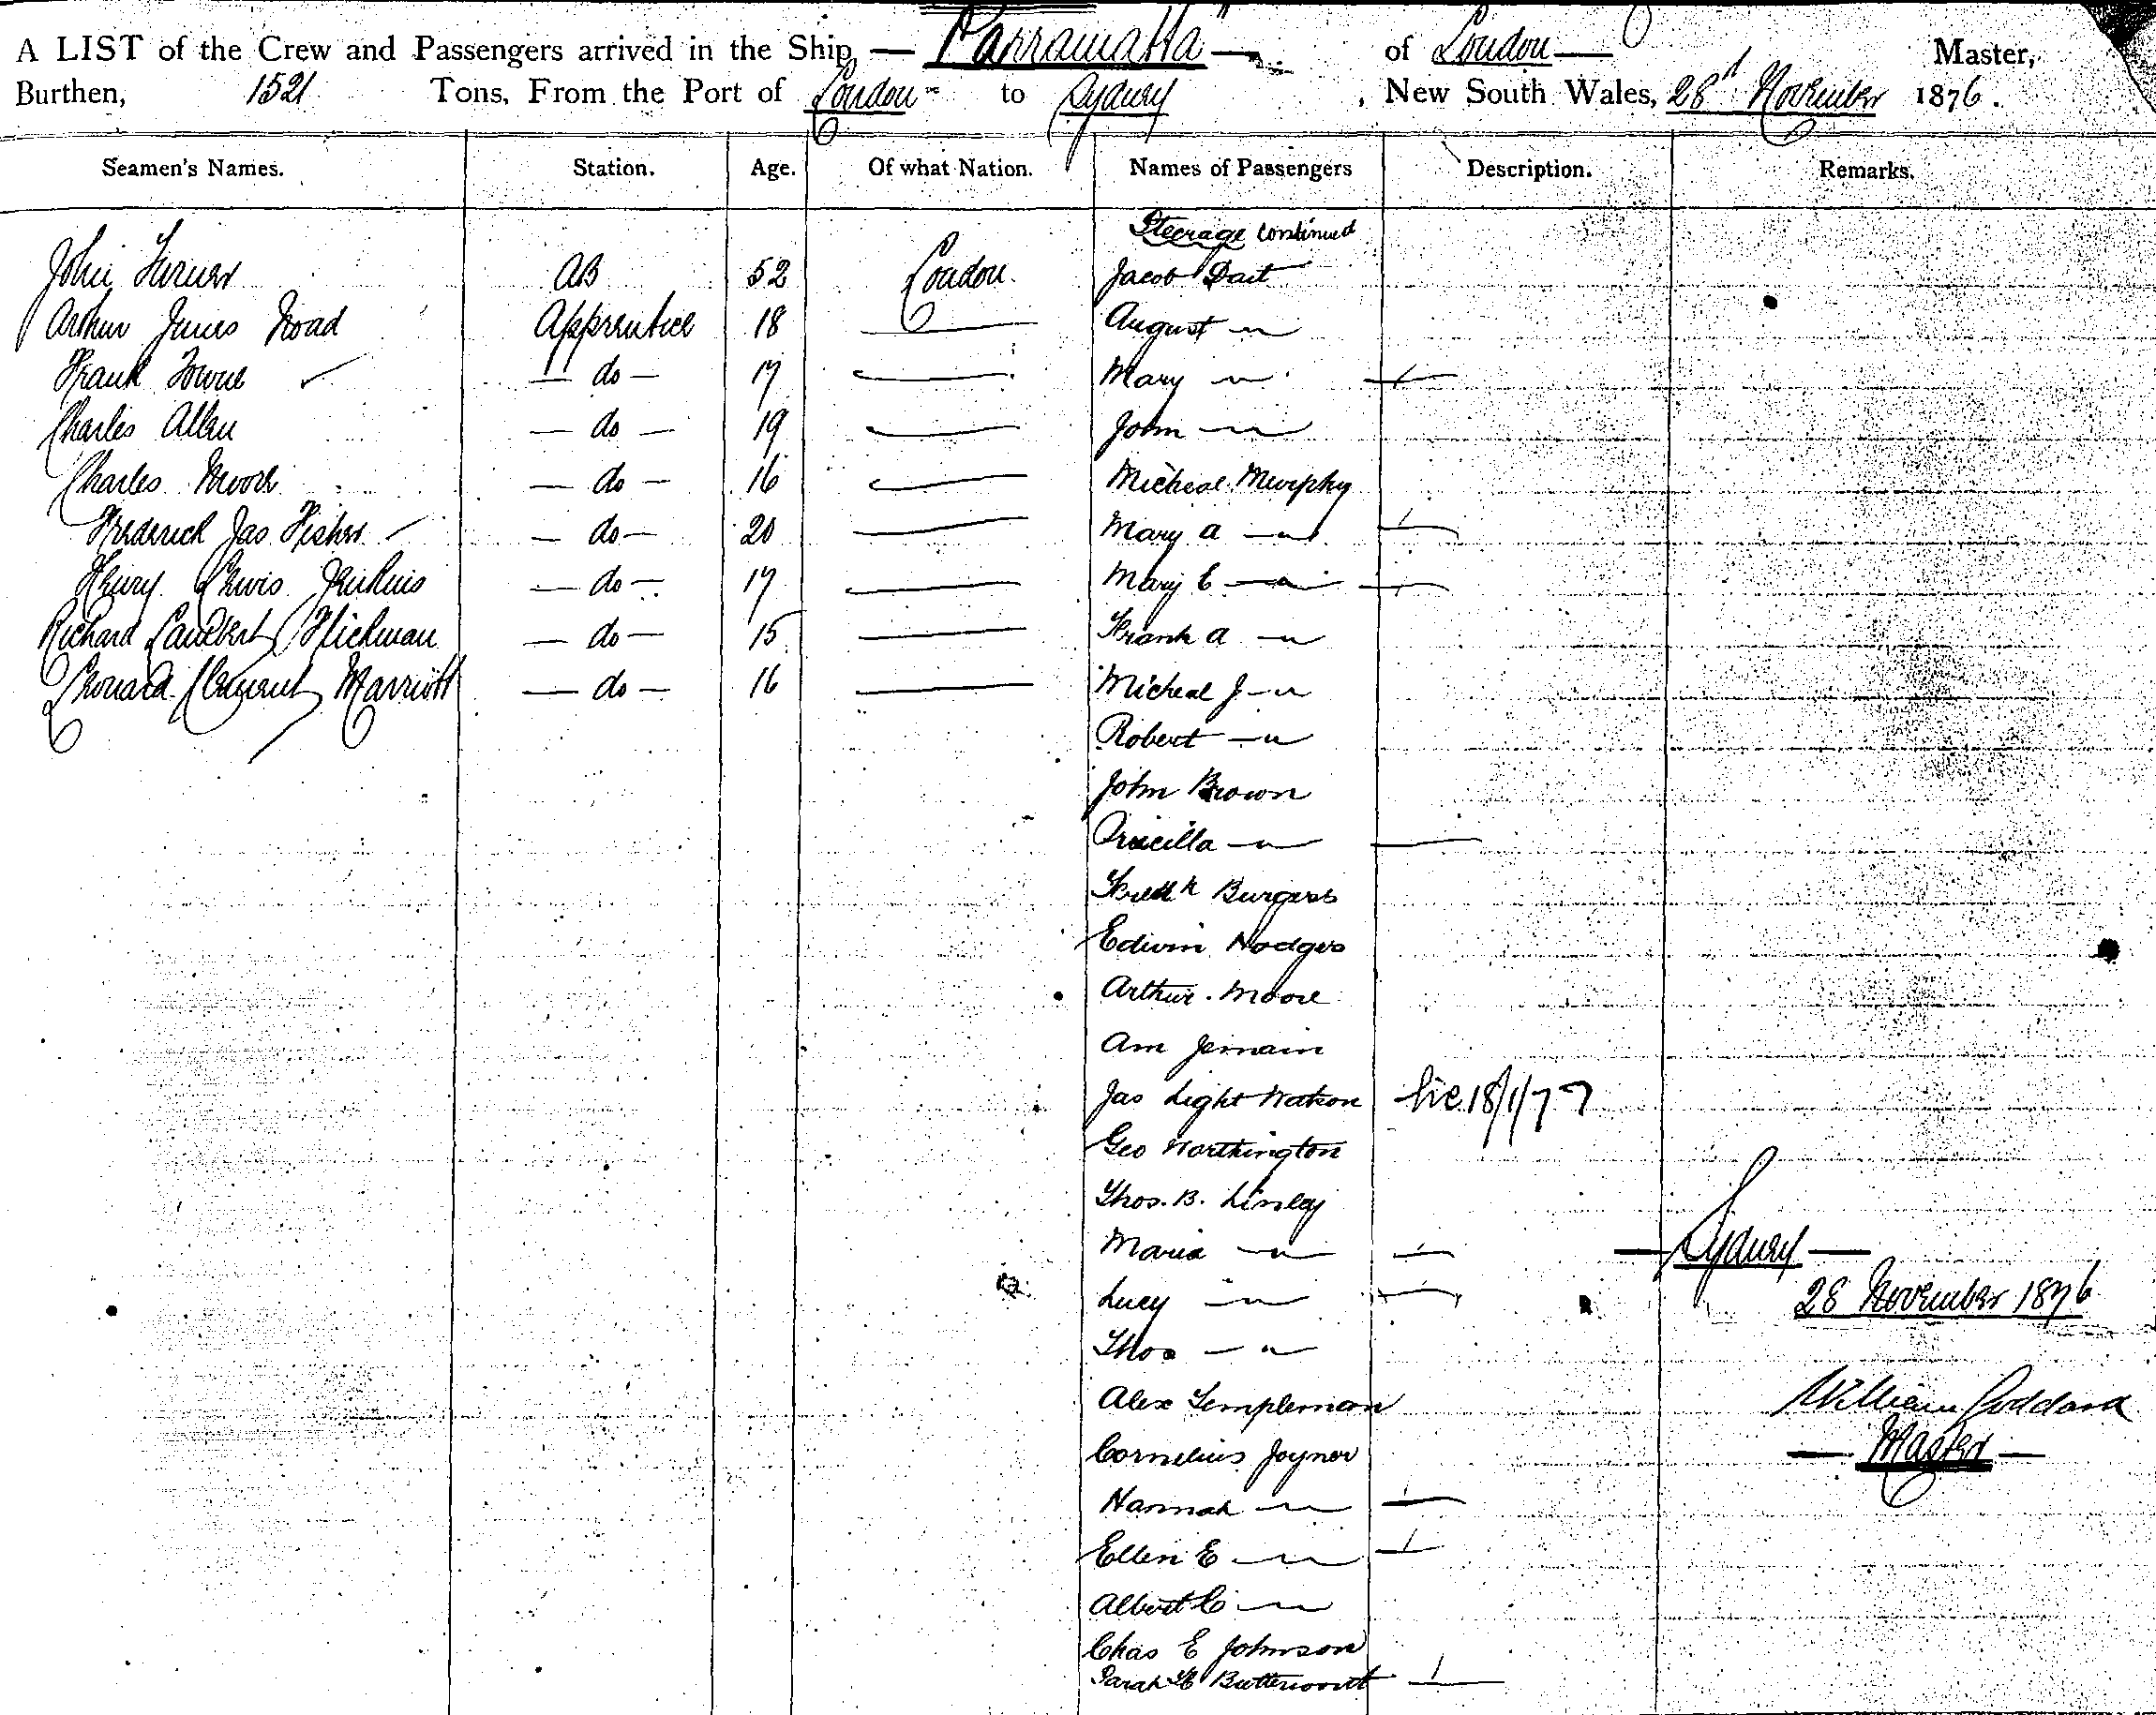 A LIST of the Crew and Passengers arrived in the Ship, — "Parramatta" — of London — Master,
Burthen, 1521 Tons, From the Port of London to Sydney, New South Wales, 28th November 1876.
Seamen's Names. Station. Age. Of what Nation. Names of Passengers Description. Remarks.
Steerage continued
John Turner AB 52 London. Jacob Dait
Arthur James Road Apprentice 18 — August — " —
Frank Towne ✓ — do — 17 — Mary — " —
Charles Allen — do — 19 — John — " —
Charles Moore — do — 16 — Micheal Murphy
Frederick Jas Fisher — do — 20 — Mary A — " —
Henry Lewis Jenkins — do — 17 — Mary E — " —
Richard Lambert Hickman — do — 15 — Frank A — " —
Leonard Clement Marriott — do — 16 — Micheal J — " —
Robert — " —
John Brown
Priscilla — " —
Fredk Burgess
Edwin Hodges
Arthur Moore
Am Jermain
Jas Light Watson Lic 18/1/77
Geo Worthington
Thos. B. Linley
Maria — " — — Sydney —
Lucy — " — 28 November 1876
Thos — " —
Alex Templeman William Goddard
Cornelius Joynor — Master —
Hannah — " —
Ellen E — " —
Albert C — " —
Chas E Johnson
Sarah Butterworth